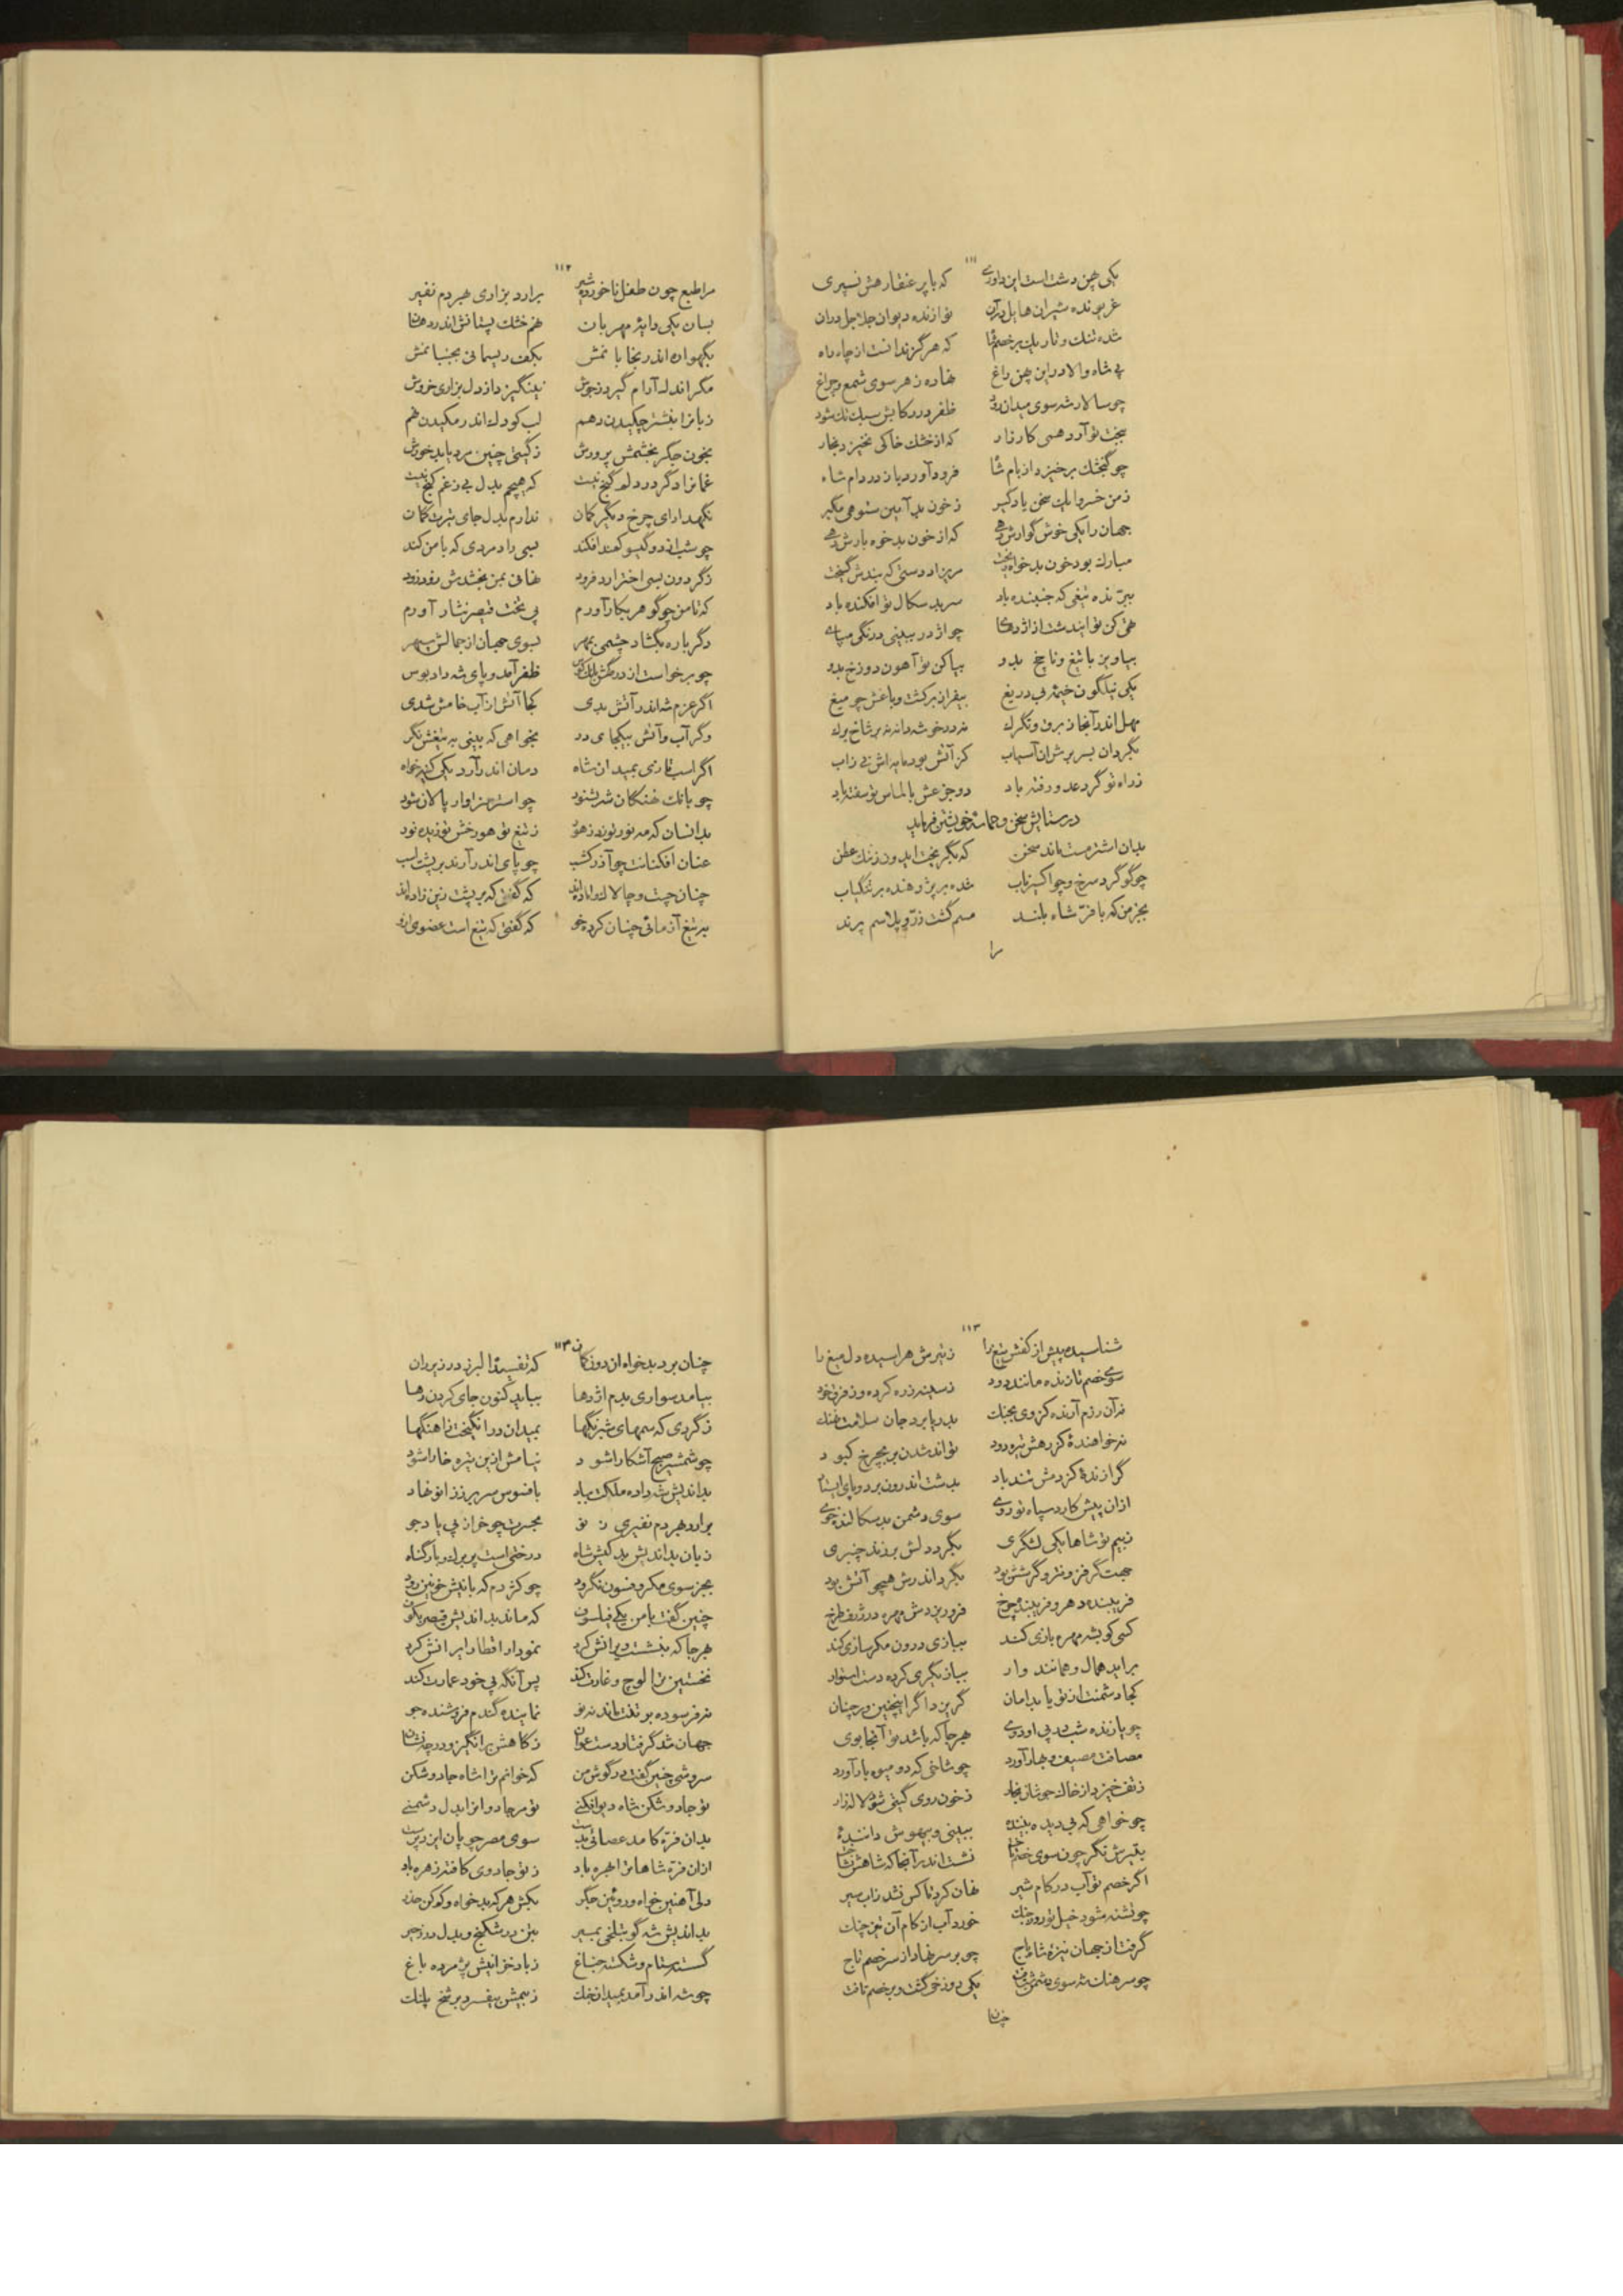 ۱۱۱
یکی پهن دشت است این داوری که با پر عنقا رهش نسپری
غریونده شیران هایل در آن نوازنده دیوان جلاجل در آن
شده تنک و تاریک بر خصم که هرگز ندانست از چاه راه
پی شاه والا در این پهن راغ نهاده ز هر سوی شمع و چراغ
چو سالار شه سوی میدان رود ظفر در رکابش سبک تک شود
ببخت تو آرد همی کارزار که از خشک خاکی نخیزد بخار
چو گنجشک برخیزد از بام شا فرود آورد باز در دام شاه
ز من خسروا یک سخن یاد گیر ز خون بد آیین شومی مگیر
جهان را یکی خوش گوارش دهی که از خون بدخواه بارش دهی
مبارک بود خون بدخواه ریخت مریزاد دستی که بندش گسیخت
برنده تیغی که جنبنده باد سر بد سکال تو افکنده باد
تهی کن تو این دشت از اژدها چو اژدر ببینی درنگی مپای
بیاویز با تیغ و ناچخ بدو بپا کن تو آهون دوزخ بدو
یکی نیلگون خیمه بی دریغ بیفراز بر کشت و باغش چو میغ
بهل اندر آنجا ز برق و تگرگ نه در خوشه دانه نه بر شاخ برگ
بگردان بسر برش از آسیاب کز آتش بود مایه‌اش نی ز آب
ز راه تو گرد عدو رفته باد دو جزعش بالماس تو سفته باد
در ستایش سخن و حماسه خویشتن فرماید
بدان اشتر مست ماند سخن که نگریخت ایدون ز تنگ عطن
چو گوگرد سرخ و چو اکسیر ناب شده بر پژوهنده بر تنگیاب
بجز من که با فر شاه بلند مسم گشت زر و پلاسم پرند
مرا
۱۱۲
مرا طبع چون طفل ناخورده شیر برارد بزاری هر دم نفیر
بسان یکی دایه مهربان نهم خشک پستانش اندر دهان
بگهواره اندر بخوابانمش بکف ریسمانی بجنبانمش
مگر اندک آرام گیرد ز جوش نینگیزد از دل بزاری خروش
زبانرا بنشتر چکیدن دهم لب کودک اندر مکیدن نهم
بخون جگر بخشمش پرورش ز گیتی چنین مرد یابد خورش
غمانرا دگر در دلم گنج نیست که هیچم بدل بی ز غم کنج نیست
نگهدار ای چرخ دیگر کمان ندارم بدل جای تیرت گمان
چو شب از دو گیسو کمند افکند بسی راد مردی که با من کند
ز گردون بسی اختر آرد فرود نهانی بمن بخشدش زود زود
که تا من چو گوهر بکار آورم پی تخت قیصر نثار آورم
دگر باره بگشاد چشمی بمهر بسوی جهان از جمالش سپهر
چو برخواست از درگهش بانگ کوس ظفر آمد و پای شه داد بوس
اگر عزم شه اندر آتش بدی کجا آتش از آب خامش شدی
وگر آب و آتش بیکجای در بخواهی که بینی به تیغش نگر
اگر اسب تازی بمیدان شاه دمان اندر آرد یکی کینه خواه
چو بانک نهنگان شه بشنود چو استر سزاوار پالان شود
بدانسان که مه نور تو بد ز هور ز تیغ تو هور خش توزید نور
عنان افکنانت چو آذرگشسب چو پای اندر آرند بر پشت اسب
چنان چست و چالاک و آزاده‌اند که گفتی که بر پشت زین زاده‌اند
به تیغ آزمائی چنان کرده خو که گفتی که تیغ است عضوی ازو
۱۱۳
شناسیده پیش از کفش تیغ را ز تیرش هراسیده دل میغ را
سوی خصم تازنده مانند دود ز سینه زره کرده وز فرق خود
نه آن رزم آرنده کز وی بجنک بدریا برد جان سلامت نهنک
نه خواهنده کز رهش تیره دود تواند شدن بر بچرخ کبود
گرازنده کز دمش تند باد بدشت اندرون بر دو پای ایستاد
ازان پیش کارد سپاه تو روی سوی دشمن بد سکالنده جوی
ز بیم تو شاها یکی لشگری بگرد دلش بر وند چنبری
حجت گر فزونتر و گر شش بود بگرد اندرش همچو آتش بود
فریبنده دهر و فریبنده چرخ فرو ریزدش مهره در ژرف طرخ
کسی کو بشه مهره بازی کند ببازی درون مکرسازی کند
براید همال و همانند وار ببازیگری کرده دست استوار
کجا دشمنت از تو یابد امان گریزد اگر اینچنین ور چنان
چو یازنده شب در پی او دوی هر جا که باشد تو آنجا بوی
مصافت مصیف و بهار آورد چو شاخی که دو میوه بار آورد
ز تف خیزد از خاک جوشان بخار ز خون روی گیتی شود لاله زار
چو خواهی که بی دیده بیننده ببینی و بیهوش داننده
بتیرش نگر چون سوی خصم تاخت نشست اندر آنجا که شاهش نشاخت
اگر خصم تو آب در کام شیر نهان کرد تا کس نشد زاب سیر
چو تشنه شود خیل تو روز جنک خورد آب از کام آن تیز چنک
گرفت از جهان نیزه شاه باج چو بر سر نهاد از سر خصم تاج
چو سرهنک شه سوی دشمن شتافت یکی دوزخی گشت و بر خصم تافت
چنان
۱۱۳
چنان برد بدخواه ازان دوزکان که تفسید البرز در زیر ران
بیامد سواری بدم اژدها بباید کنون جای کردن رها
ز گردی که سمهای شبرنگها بمیدان در انگیخت ز آهنگها
چو شمشیر صبح آشکارا شود نیامش ازین تیره خارا شود
بداندیش شه داده ملکت بباد بافسوس سر بر ز زانو نهاد
برآرد هر دم نفیری ز نو بحسرت چو خر از پی باد جو
زبان بداندیش بد کیش شاه درختی است پر برگ و بار گناه
بجز سوی مکر و فسون نگرود چو کژدم که با نیش خونین رود
چنین گفت با من یکی فیلسوف که ماند بداندیش قیصر بکوف
هر جا که بنشست ویرانش کرد نمودار اقطار ایرانش کرد
نخستین ترا لوچ و غارت کند پس آنگه پی خود عمارت کند
نه فرسوده بر تنت ماند نه نو نماینده گندم فروشنده جو
جهان شد گرفتار دست عوان ز کاهش برانگیز و در چه نشان
سروشی چنین گفت در گوش من که خوانم ترا شاه جادو شکن
تو جادو شکن شاه دیو افکنی تو مر جادوانرا بدل دشمنی
بدان فره کامد عصائی بدست سوی مصر چوپان ایزد پرست
ازان فره شاها ترا بهره باد ز تو جادوی کافته زهره باد
دلی آهنین خواه و روئین جگر بکش هر که بدخواه و کوکن حذر
بداندیش شه گو بتلخی بمیر بتن در شکنج و بدل در زحیر
گسسته ستام و شکسته جناغ ز باد خزانیش پژمرده باغ
چو شه اندر آمد بمیدان جنک ز بیمش بیفسرد بر شخ پلنک